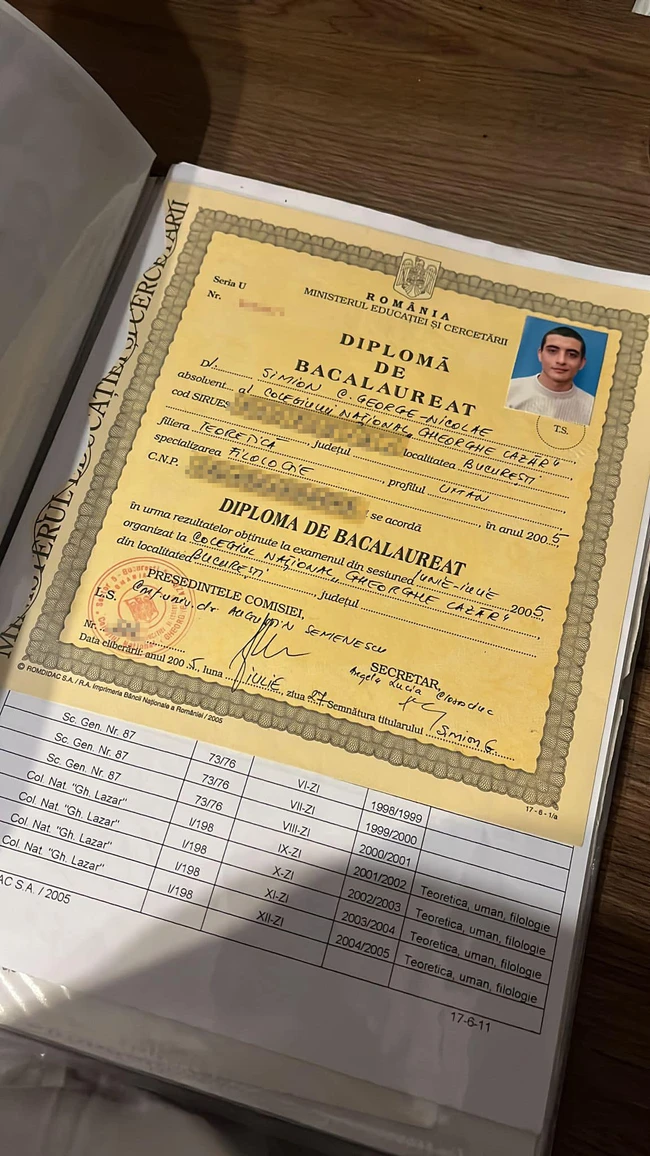 MINISTERUL EDUCAȚIEI ȘI CERCETĂRII
Seria U
Nr.
ROMÂNIA
MINISTERUL EDUCAȚIEI ȘI CERCETĂRII
DIPLOMĂ
DE
BACALAUREAT
T.S.
D/. SIMION C. GEORGE-NICOLAE
absolvent al COLEGIULUI NAȚIONAL "GHEORGHE LAZĂR"
cod SIRUES localitatea BUCUREȘTI
filiera TEORETICĂ, județul, profilul UMAN
specializarea FILOLOGIE, în anul 2005
C.N.P., se acordă
DIPLOMA DE BACALAUREAT
în urma rezultatelor obținute la examenul din sesiunea IUNIE-IULIE 2005
organizat la COLEGIUL NAȚIONAL "GHEORGHE LAZĂR"
din localitatea BUCUREȘTI, județul
PREȘEDINTELE COMISIEI,
L.S. Conf. univ. dr. AUGUSTIN SEMENESCU
SECRETAR,
Angela Lucia
Nr.
Data eliberării: anul 2005, luna IULIE, ziua 27 Semnătura titularului Simion G.
© ROMDIDAC S.A. / R.A. Imprimeria Băncii Naționale a României / 2005
17-6-1/a
Sc. Gen. Nr. 87 73/76 VI-ZI 1998/1999
Sc. Gen. Nr. 87 73/76 VII-ZI 1999/2000
Sc. Gen. Nr. 87 73/76 VIII-ZI 2000/2001
Col. Nat. "Gh. Lazar" I/198 IX-ZI 2001/2002 Teoretica, uman, filologie
Col. Nat. "Gh. Lazar" I/198 X-ZI 2002/2003 Teoretica, uman, filologie
Col. Nat. "Gh. Lazar" I/198 XI-ZI 2003/2004 Teoretica, uman, filologie
Col. Nat. "Gh. Lazar" I/198 XII-ZI 2004/2005 Teoretica, uman, filologie
DAC S.A. / 2005
17-6-11